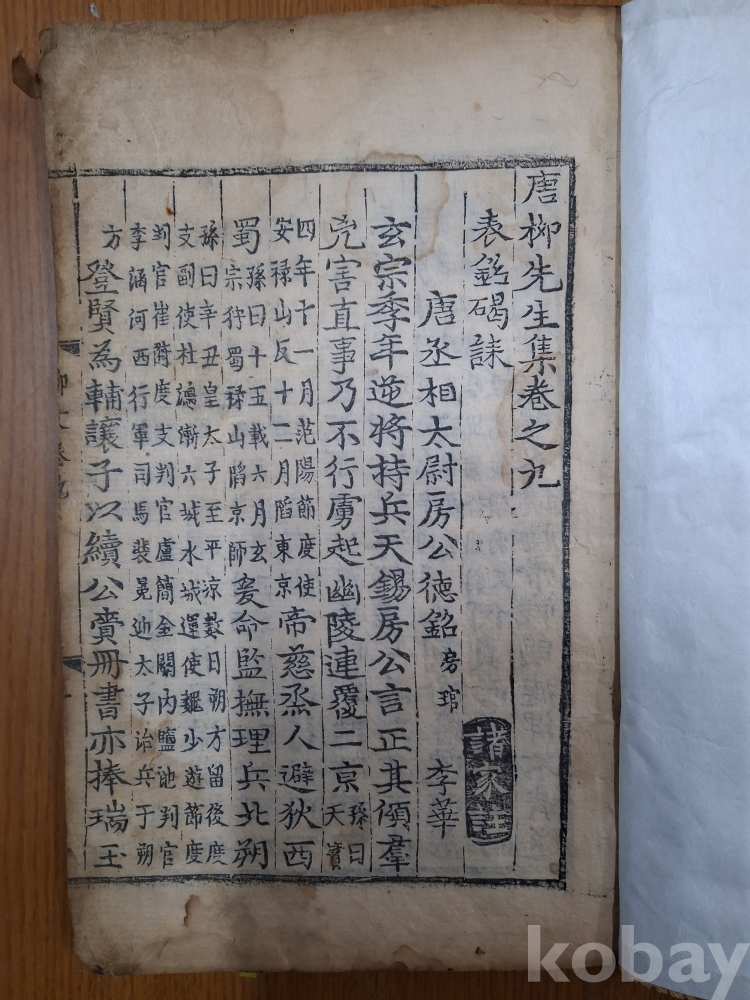 唐柳先生集卷之九
表銘碣誄
諸家註
唐丞相太尉房公德銘 房琯 李華
玄宗季年逆将持兵天錫房公言正其傾羣
兇害直事乃不行虜起幽陵連覆二京 孫曰天寳
四年十一月范陽節度使安禄山反十二月陷東京 帝慈烝人避狄西
蜀 孫曰十五載六月玄宗狩蜀禄山陷京師 爰命監撫理兵北朔
孫曰辛丑皇太子至平凉數日朔方留後度
支副使杜鴻漸六城水城運使魏少遊節度
判官崔漪度支判官盧簡全關內鹽池判官
李涵河西行軍司馬裴冕迎太子治兵于朔
方 登賢為輔讓子以續公賫冊書亦捧瑞玉
柳文卷九
kobay